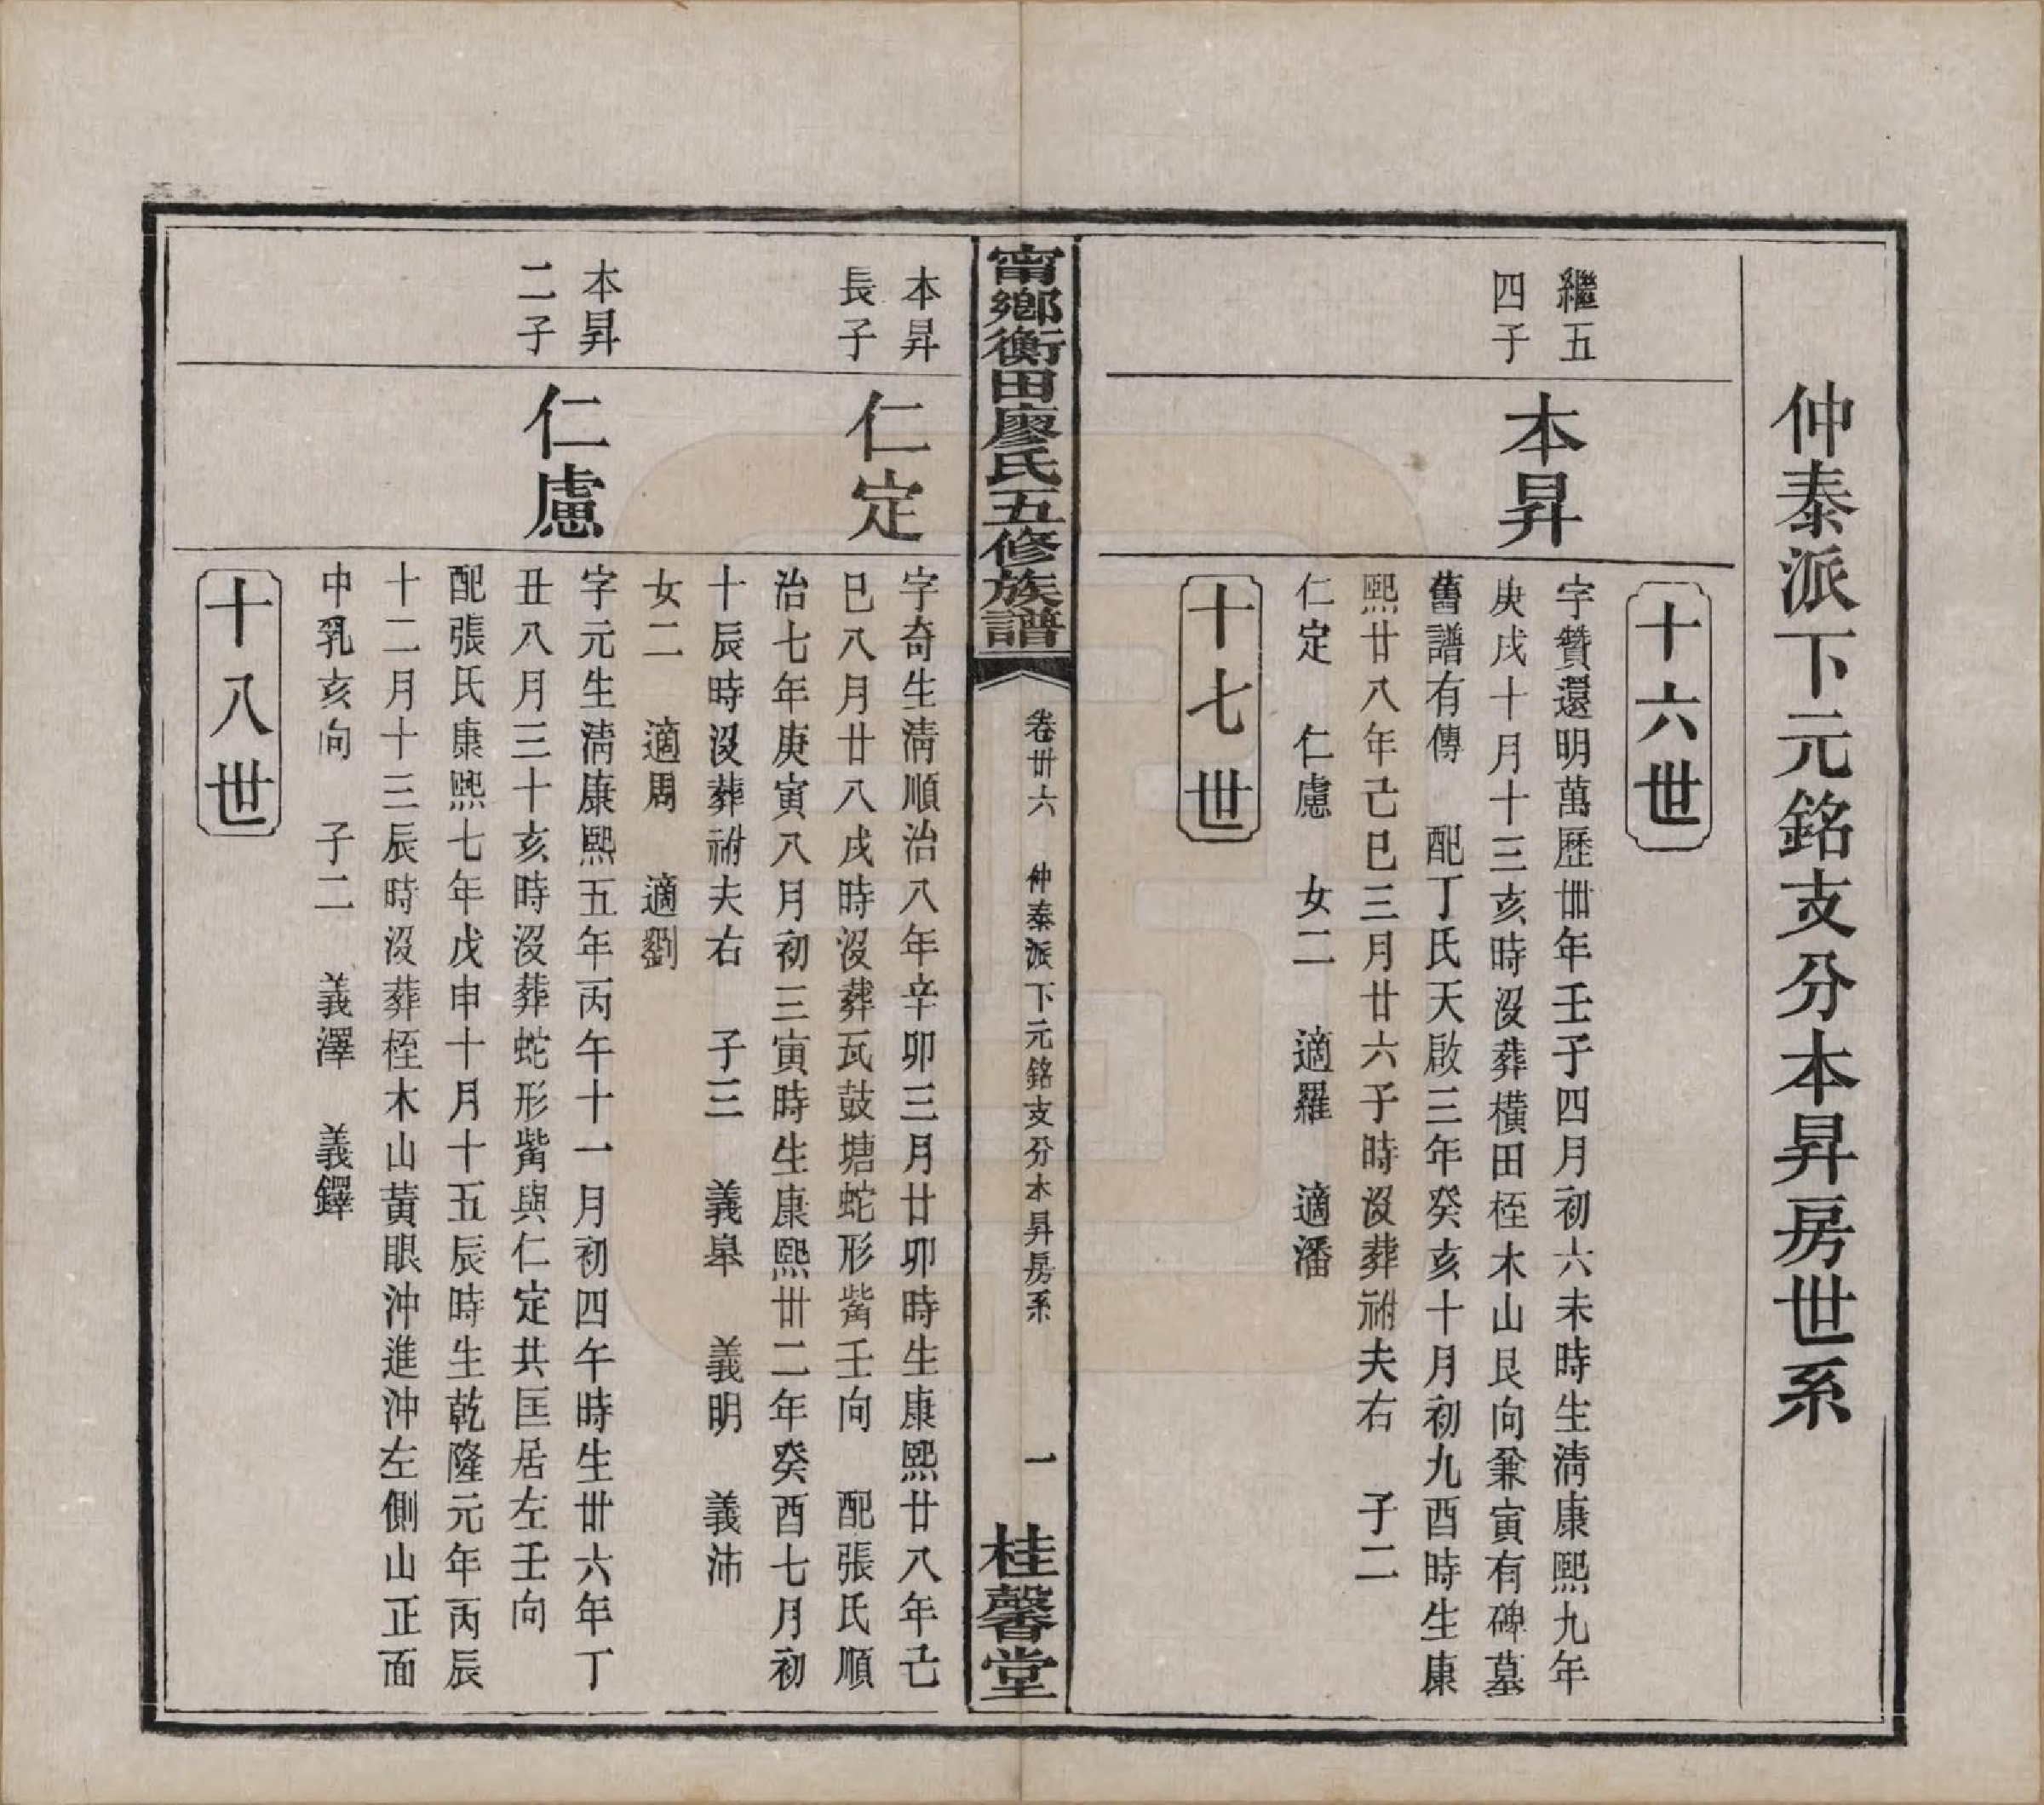 仲泰派下元銘支分本昇房世系
十六世
繼五
四子
本昇
字贊還明萬歷卌年壬子四月初六未時生淸康熙九年
庚戌十月十三亥時沒葬橫田桎木山艮向兼寅有碑墓
舊譜有傳 配丁氏天啟三年癸亥十月初九酉時生康
熙廿八年己巳三月廿六子時沒葬祔夫右 子二
仁定 仁慮 女二 適羅 適潘
十七世
甯鄉衡田廖氏五修族譜
卷卅六 仲泰派下元銘支分本昇房系 一
桂馨堂
本昇
長子
仁定
字奇生淸順治八年辛卯三月廿卯時生康熙廿八年己
巳八月廿八戌時沒葬瓦鼓塘蛇形觜壬向 配張氏順
治七年庚寅八月初三寅時生康熙卅二年癸酉七月初
十辰時沒葬祔夫右 子三 義皋 義明 義沛
女二 適周 適劉
本昇
二子
仁慮
字元生淸康熙五年丙午十一月初四午時生卅六年丁
丑八月三十亥時沒葬蛇形觜與仁定共匡居左壬向
配張氏康熙七年戊申十月十五辰時生乾隆元年丙辰
十二月十三辰時沒葬桎木山黃眼沖進沖左側山正面
中乳亥向 子二 義澤 義鐸
十八世